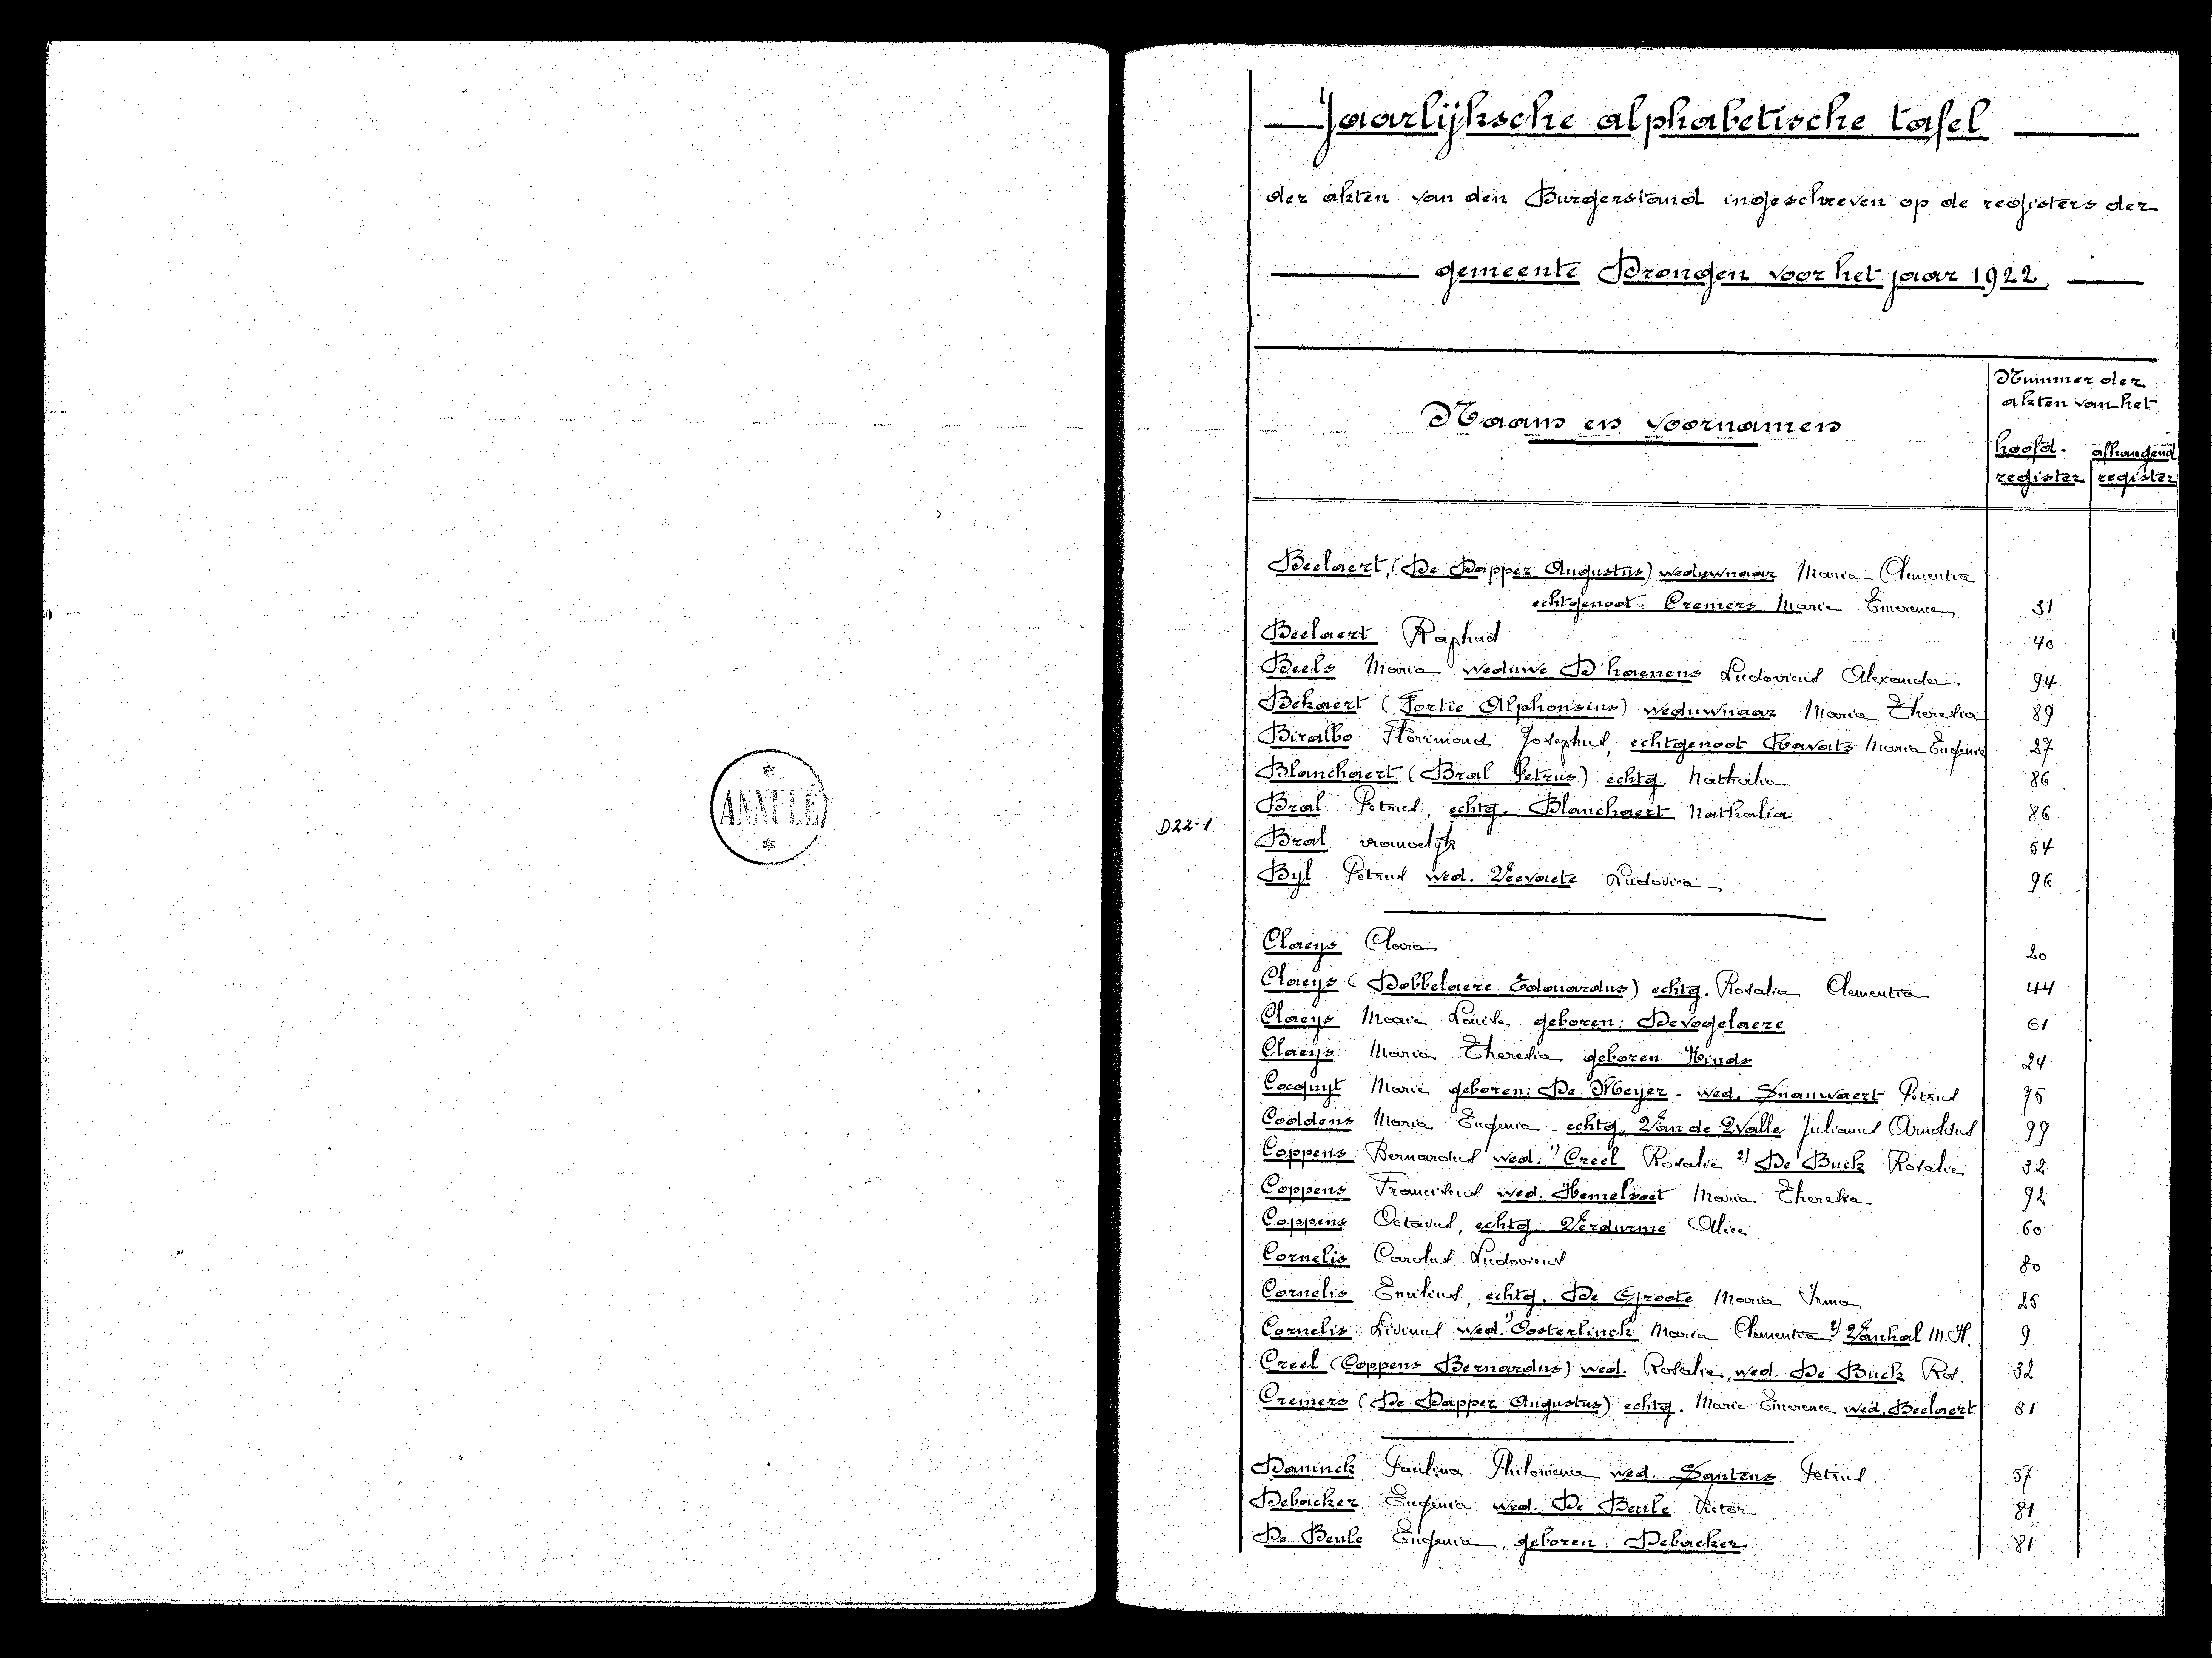 ANNULÉ
Jaarlijksche alphabetische tafel
der akten van den Burgerstand ingeschreven op de registers der
gemeente Drongen voor het jaar 1922
Naam en voornamen
Nummer der
akten van het
hoofd- afhangend
register register
Beelaert, (De Dapper Augustus) weduwnaar Maria Clementia
echtgenoot: Cremers Marie Emerence 31
Beelaert Raphaël 40
Beels Maria weduwe D'haenens Ludovicus Alexander 94
Bekaert (Fortie Alphonsius) weduwnaar Maria Theresia 89
Biralbo Florimond Josephus, echtgenoot Ravats Maria Eugenia 27
Blanchaert (Bral Petrus) echtg. Nathalia 86
Bral Petrus, echtg. Blanchaert Nathalia 86
D22-1
Bral vrouwelijk 54
Byl Petrus wed. Veevaete Ludovica 96
Claeys Clara 20
Claeys (Dobbelaere Edouardus) echtg. Rosalia Clementia 44
Claeys Marie Louise geboren: Devogelaere 61
Claeys Maria Theresia geboren Kinds 24
Cocquyt Marie geboren: De Meyer - wed. Snauwaert Petrus 75
Coddens Maria Eugenia - echtg. Van de Walle Julianus Arnoldus 99
Coppens Bernardus wed. 1) Creel Rosalie 2) De Buck Rosalie 32
Coppens Franciscus wed. Hemelsoet Maria Theresia 92
Coppens Octavus, echtg. Verdurme Alice 60
Cornelis Carolus Ludovicus 80
Cornelis Emilius, echtg. De Groote Maria Irma 25
Cornelis Livinus wed. 1) Oosterlinck Maria Clementia 2) Vanhal M. H. 9
Creel (Coppens Bernardus) wed. Rosalie, wed. De Buck Ros. 32
Cremers (De Dapper Augustus) echtg. Marie Emerence wed. Beelaert 31
Daninck Paulina Philomena wed. Santens Petrus. 57
Debacker Eugenia wed. De Beule Victor 81
De Beule Eugenia, geboren: Debacker 81